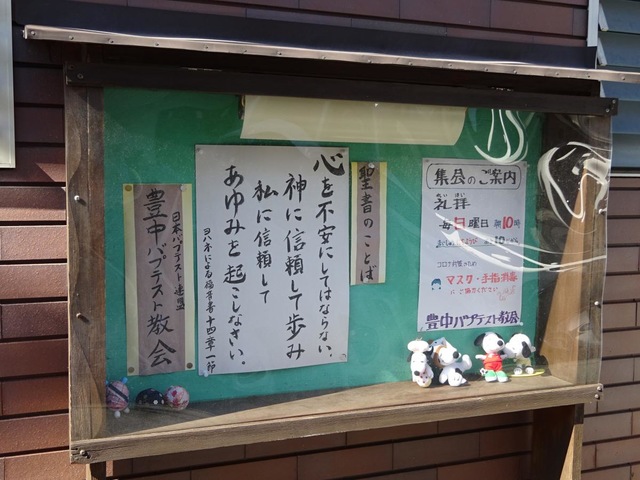 集会のご案内
礼拝
毎日曜日 朝10時
コロナ対策のため
マスク・手指消毒
にご協力ください
豊中バプテスト教会
聖書のことば
心を不安にしてはならない、
神に信頼して歩み
私に信頼して
あゆみを起こしなさい。
ヨハネによる福音書十四章一節
日本バプテスト連盟
豊中バプテスト教会